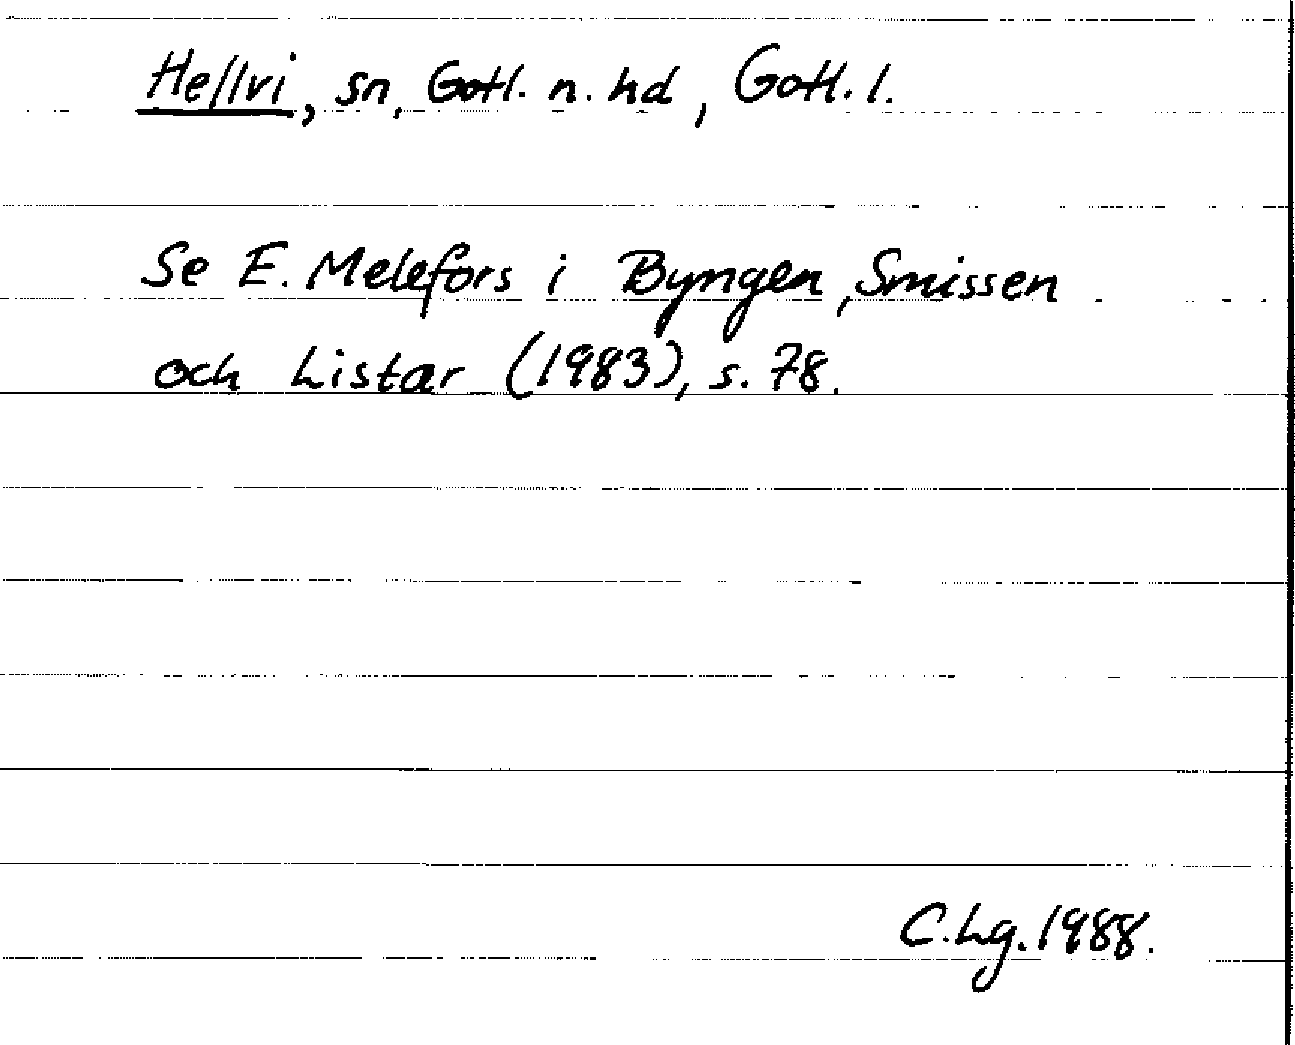 Hellvi, sn, Gotl. n. hd, Gotl. l.
Se E. Melefors i Byngen, Smissen
och Listar (1983), s. 78.
C.Lg. 1988.